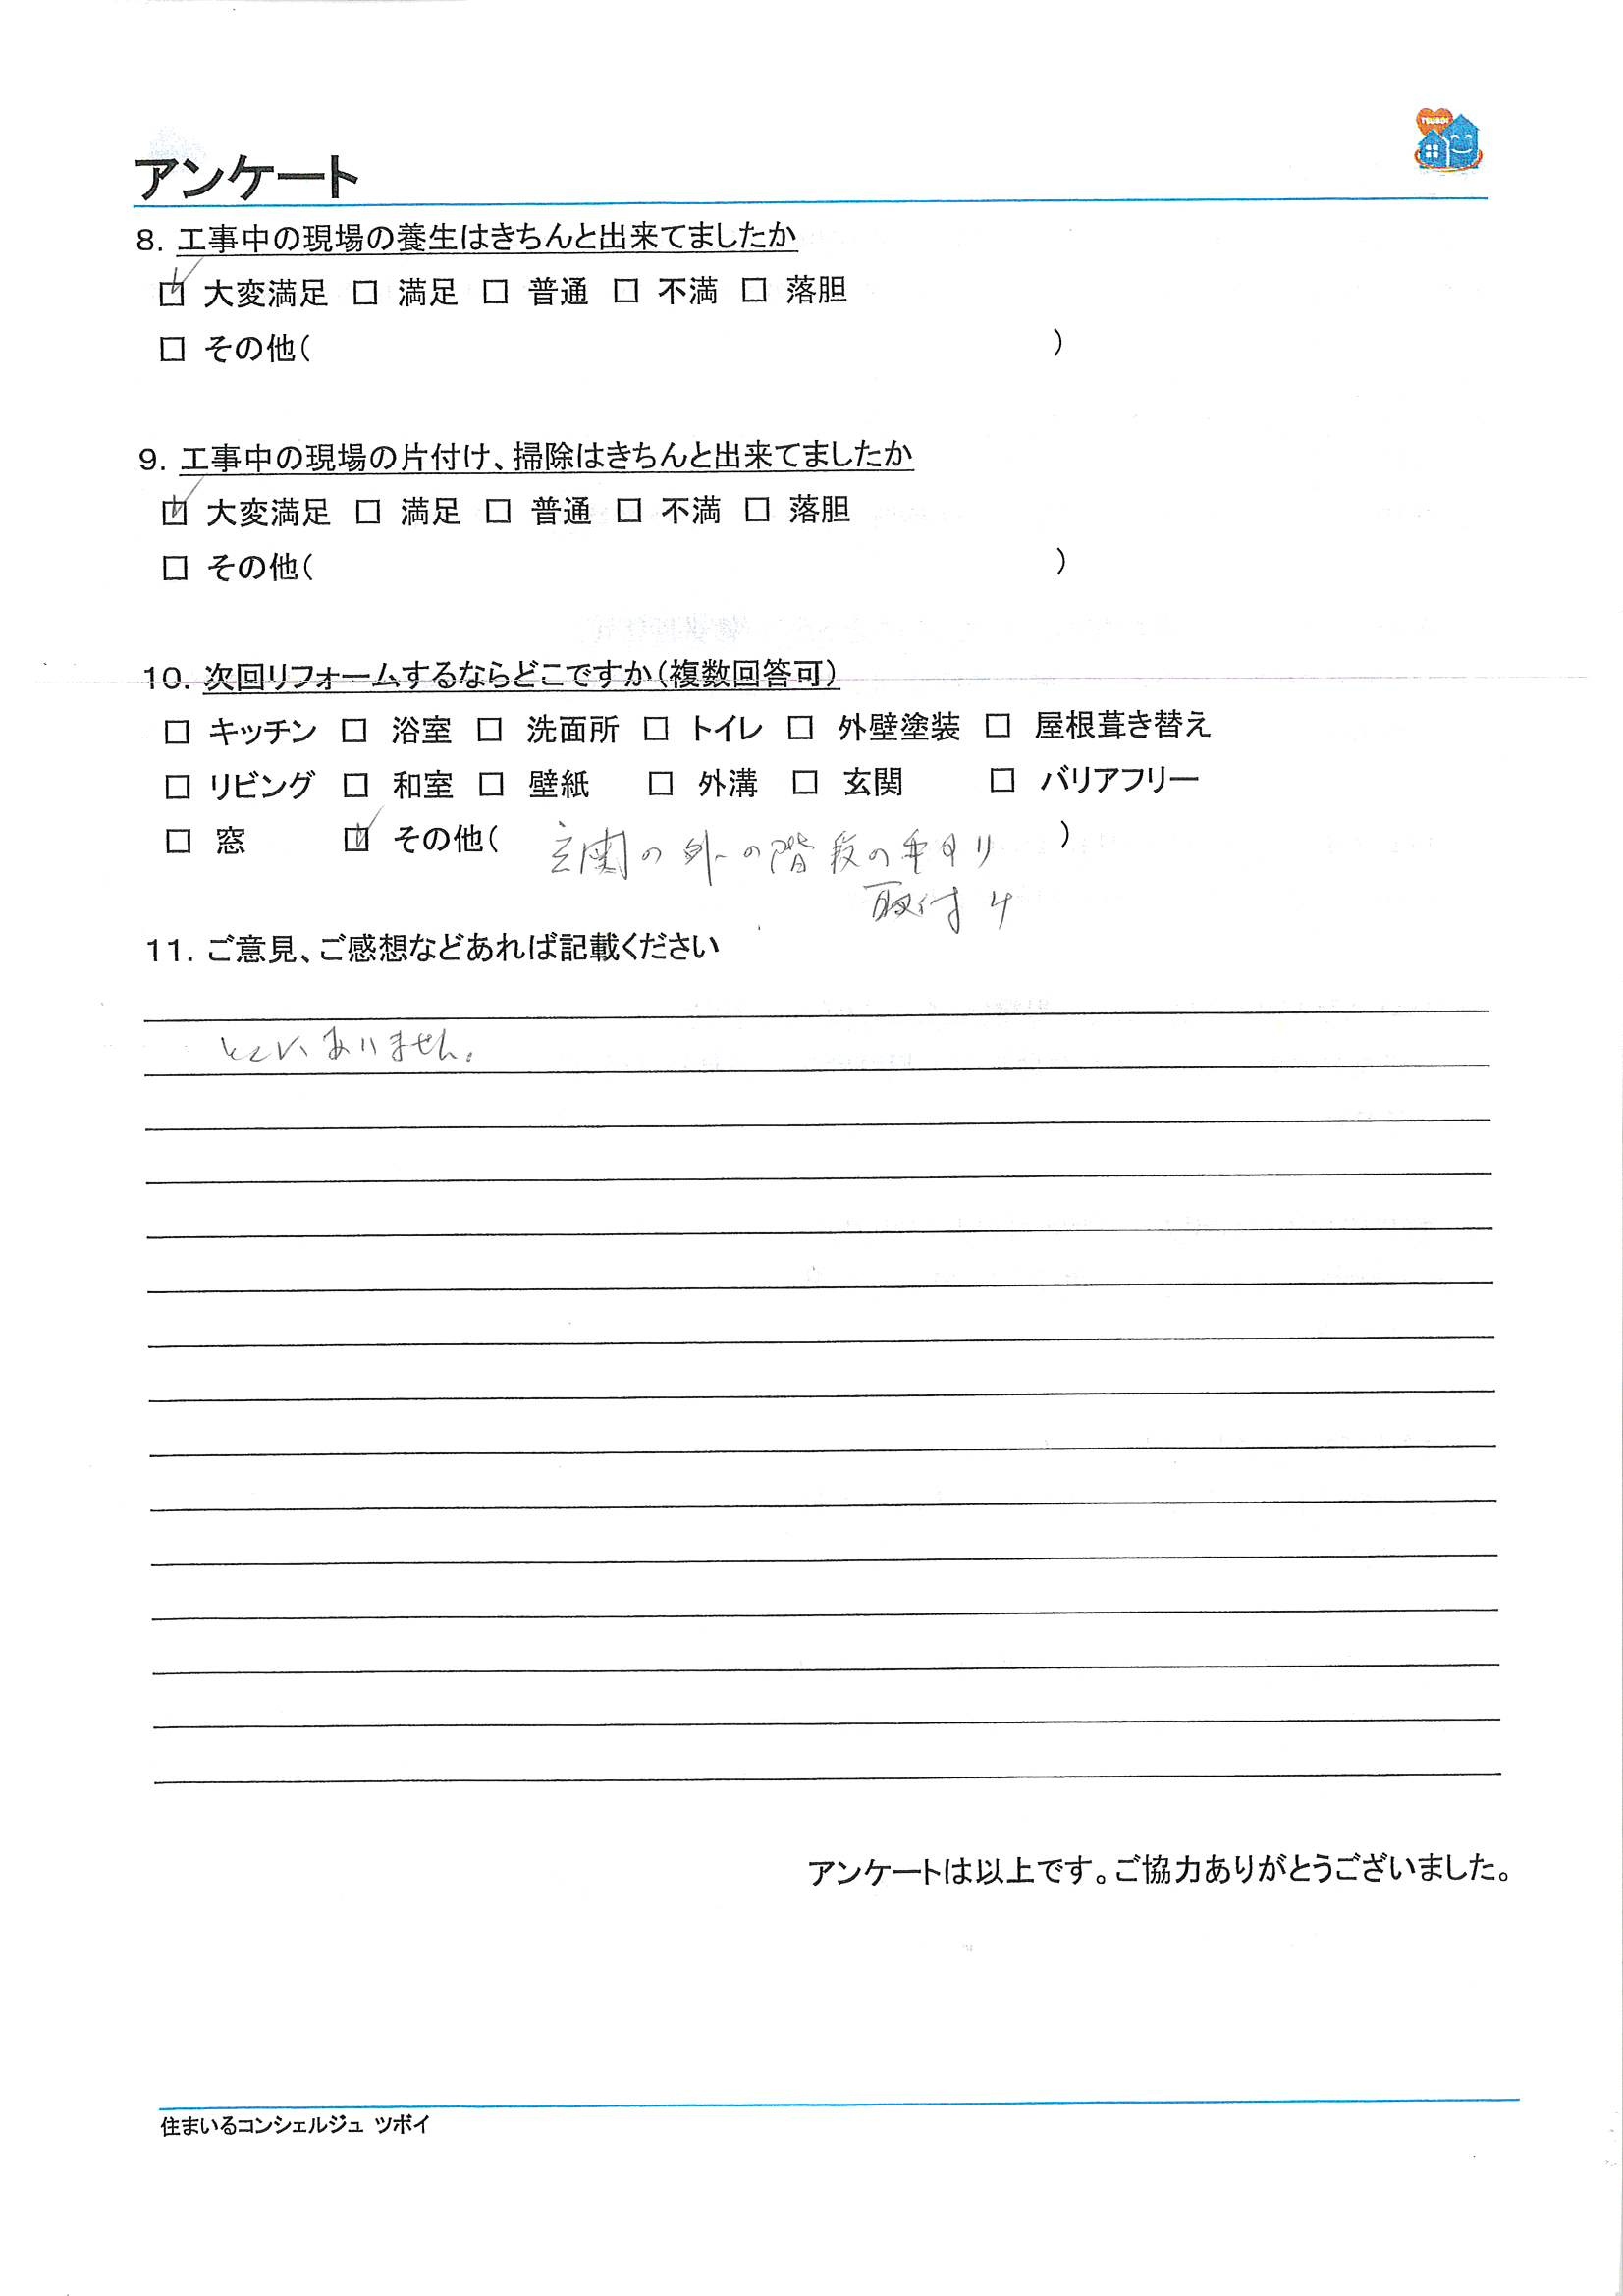 TSUBOI
アンケート
8. 工事中の現場の養生はきちんと出来てましたか
☑ 大変満足 □ 満足 □ 普通 □ 不満 □ 落胆
□ その他( )
9. 工事中の現場の片付け、掃除はきちんと出来てましたか
☑ 大変満足 □ 満足 □ 普通 □ 不満 □ 落胆
□ その他( )
10. 次回リフォームするならどこですか(複数回答可)
□ キッチン □ 浴室 □ 洗面所 □ トイレ □ 外壁塗装 □ 屋根葺き替え
□ リビング □ 和室 □ 壁紙 □ 外溝 □ 玄関 □ バリアフリー
□ 窓 ☑ その他( 玄関の外の階段の手すり )
取付け
11. ご意見、ご感想などあれば記載ください
とくにありません。
アンケートは以上です。ご協力ありがとうございました。
住まいるコンシェルジュ ツボイ